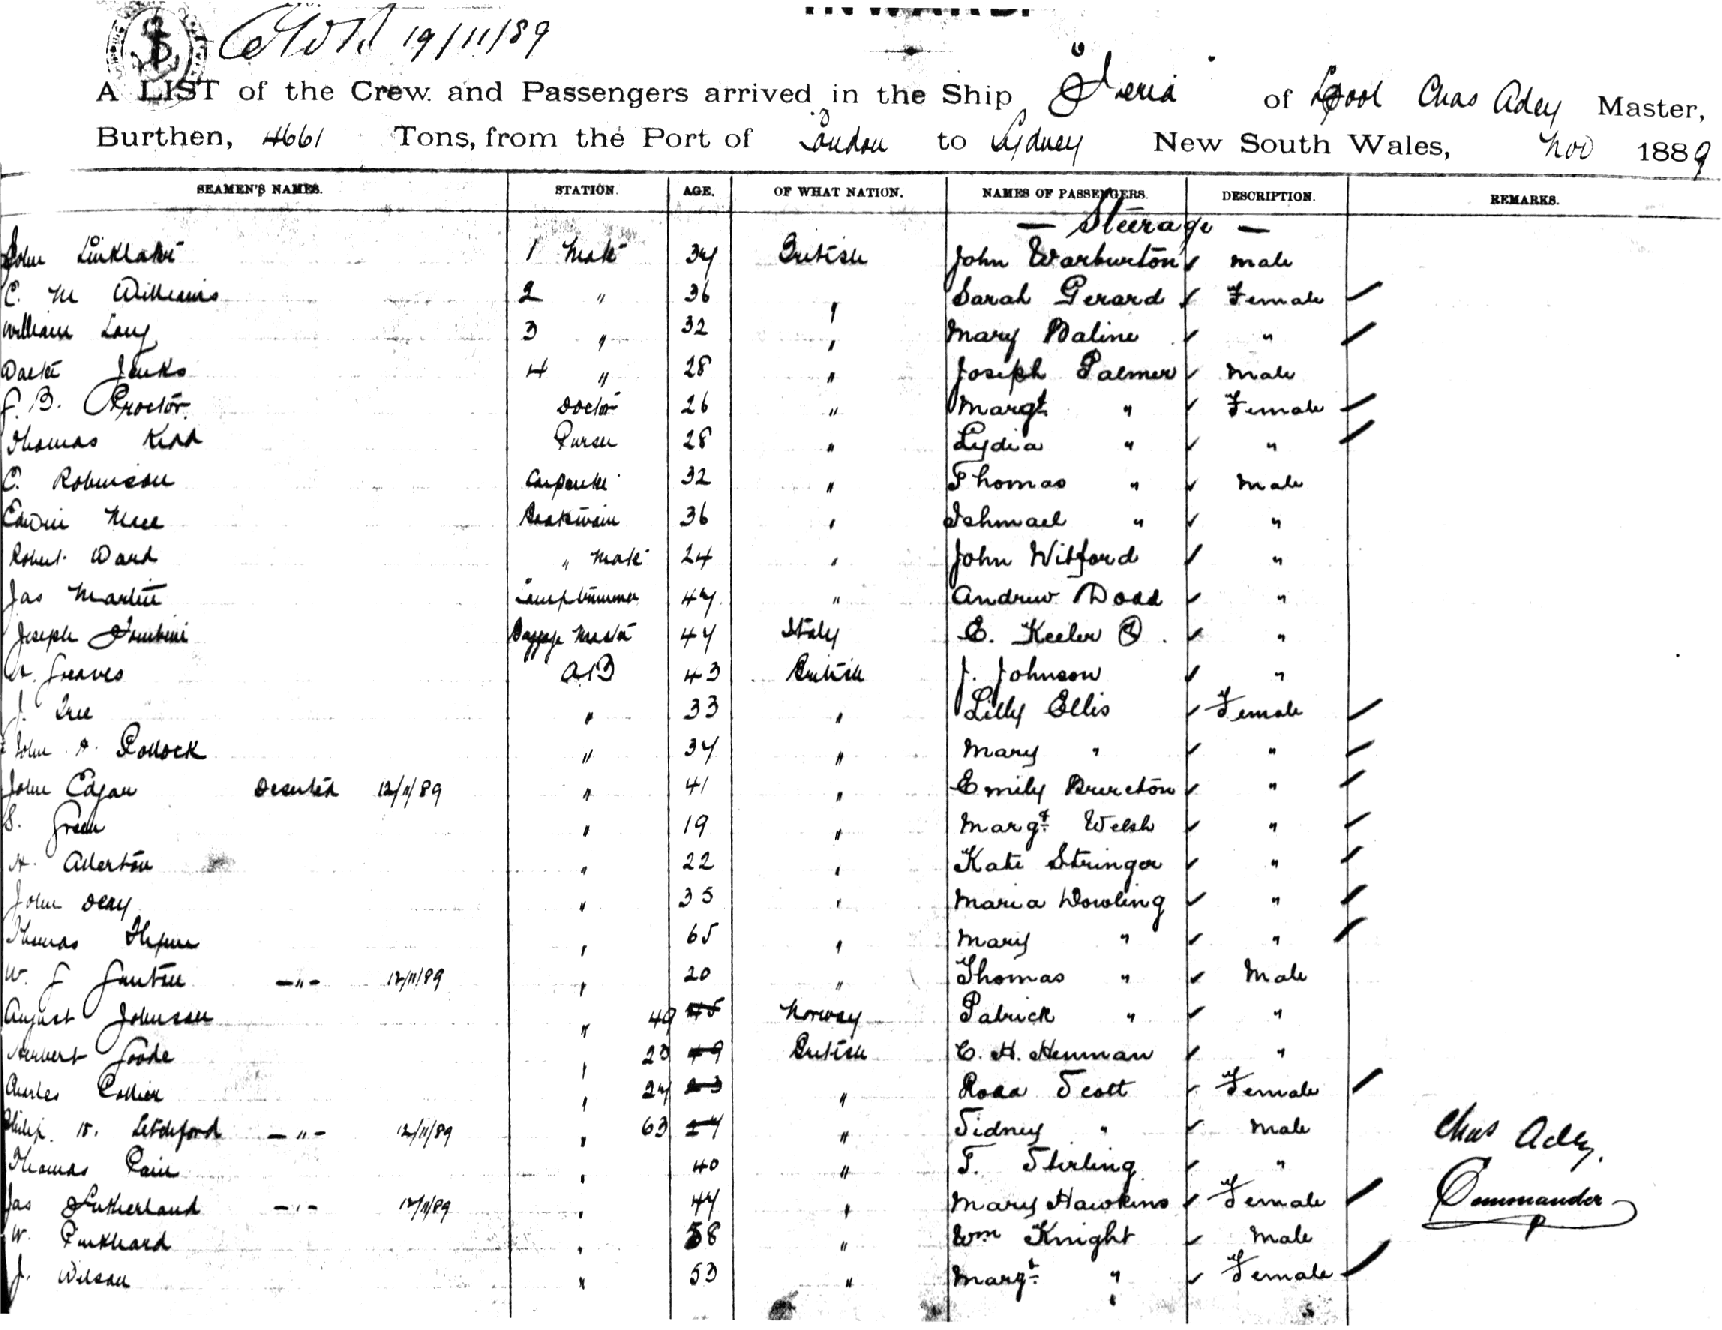 19/11/89
A LIST of the Crew and Passengers arrived in the Ship Iberia of Lpool Chas Adey Master,
Burthen, 4661 Tons, from the Port of London to Sydney New South Wales, Nov 1889
SEAMEN'S NAMES. STATION. AGE. OF WHAT NATION. NAMES OF PASSENGERS. DESCRIPTION. REMARKS.
— Steerage —
John Linklater 1 Mate 34 British John Warburton ✓ Male
C. M Williams 2 " 36 " Sarah Gerard ✓ Female
William Lang 3 " 32 " Mary Maline ✓ "
Walter Jenks 4 " 28 " Joseph Palmer ✓ Male
J. B. Proctor Doctor 26 " Margt " ✓ Female
Thomas Kidd Purser 28 " Lydia " ✓ "
C. Robinson Carpenter 32 " Thomas " ✓ Male
Edwin Boatswain 36 " Ishmael " ✓ "
Robert Ward " Mate 24 " John Witford ✓ "
Jas Martin Lamptrimmer 47 " Andrew Dodd ✓ "
Joseph Baggage Master 44 Italy E. Keeler ✓ "
Greaves AB 43 British J. Johnson ✓ "
J. Tree " 33 " Lilly Ellis ✓ Female
John A. Pollock " 34 " Mary " ✓ "
John Edgar Deserted 12/11/89 " 41 " Emily Brereton ✓ "
S. Green " 19 " Margt Welsh ✓ "
A. Allerton " 22 " Kate Stringer ✓ "
John Deay " 35 " Maria Dowling ✓ "
Thomas " 65 " Mary " ✓ "
W. J —"— 12/11/89 " 20 " Thomas " ✓ Male
August Johnsen " 49 45 Norway Patrick " ✓ "
Herbert Goode " 23 49 British C. H. Henman ✓ "
Charles Collier " 24 23 " Rosa Scott ✓ Female
Philip W. Letchford —"— 12/11/89 " 63 24 " Sidney " ✓ Male
Thomas Pain " 40 " F. Stirling ✓ "
Jas Sutherland —"— 12/11/89 " 44 " Mary Hawkins ✓ Female
W. Punkhard " 58 " Wm Knight ✓ Male
J. Wilson " 53 " Margt " ✓ Female
Chas Adey,
Commander